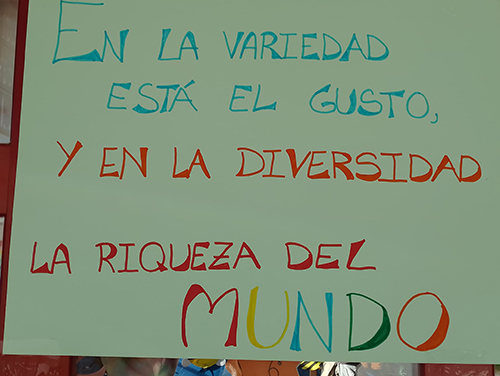 EN LA VARIEDAD
ESTÁ EL GUSTO,
Y EN LA DIVERSIDAD
LA RIQUEZA DEL
MUNDO